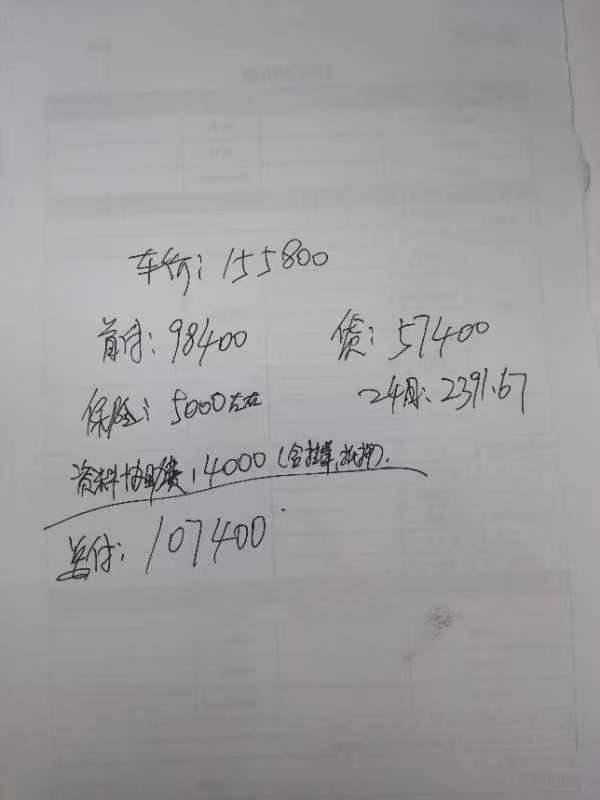 车价：155800
首付：98400
贷：57400
保险：5000左右
24月：2391.67
资料协助费：4000（含挂牌，抵押）.
总付：107400